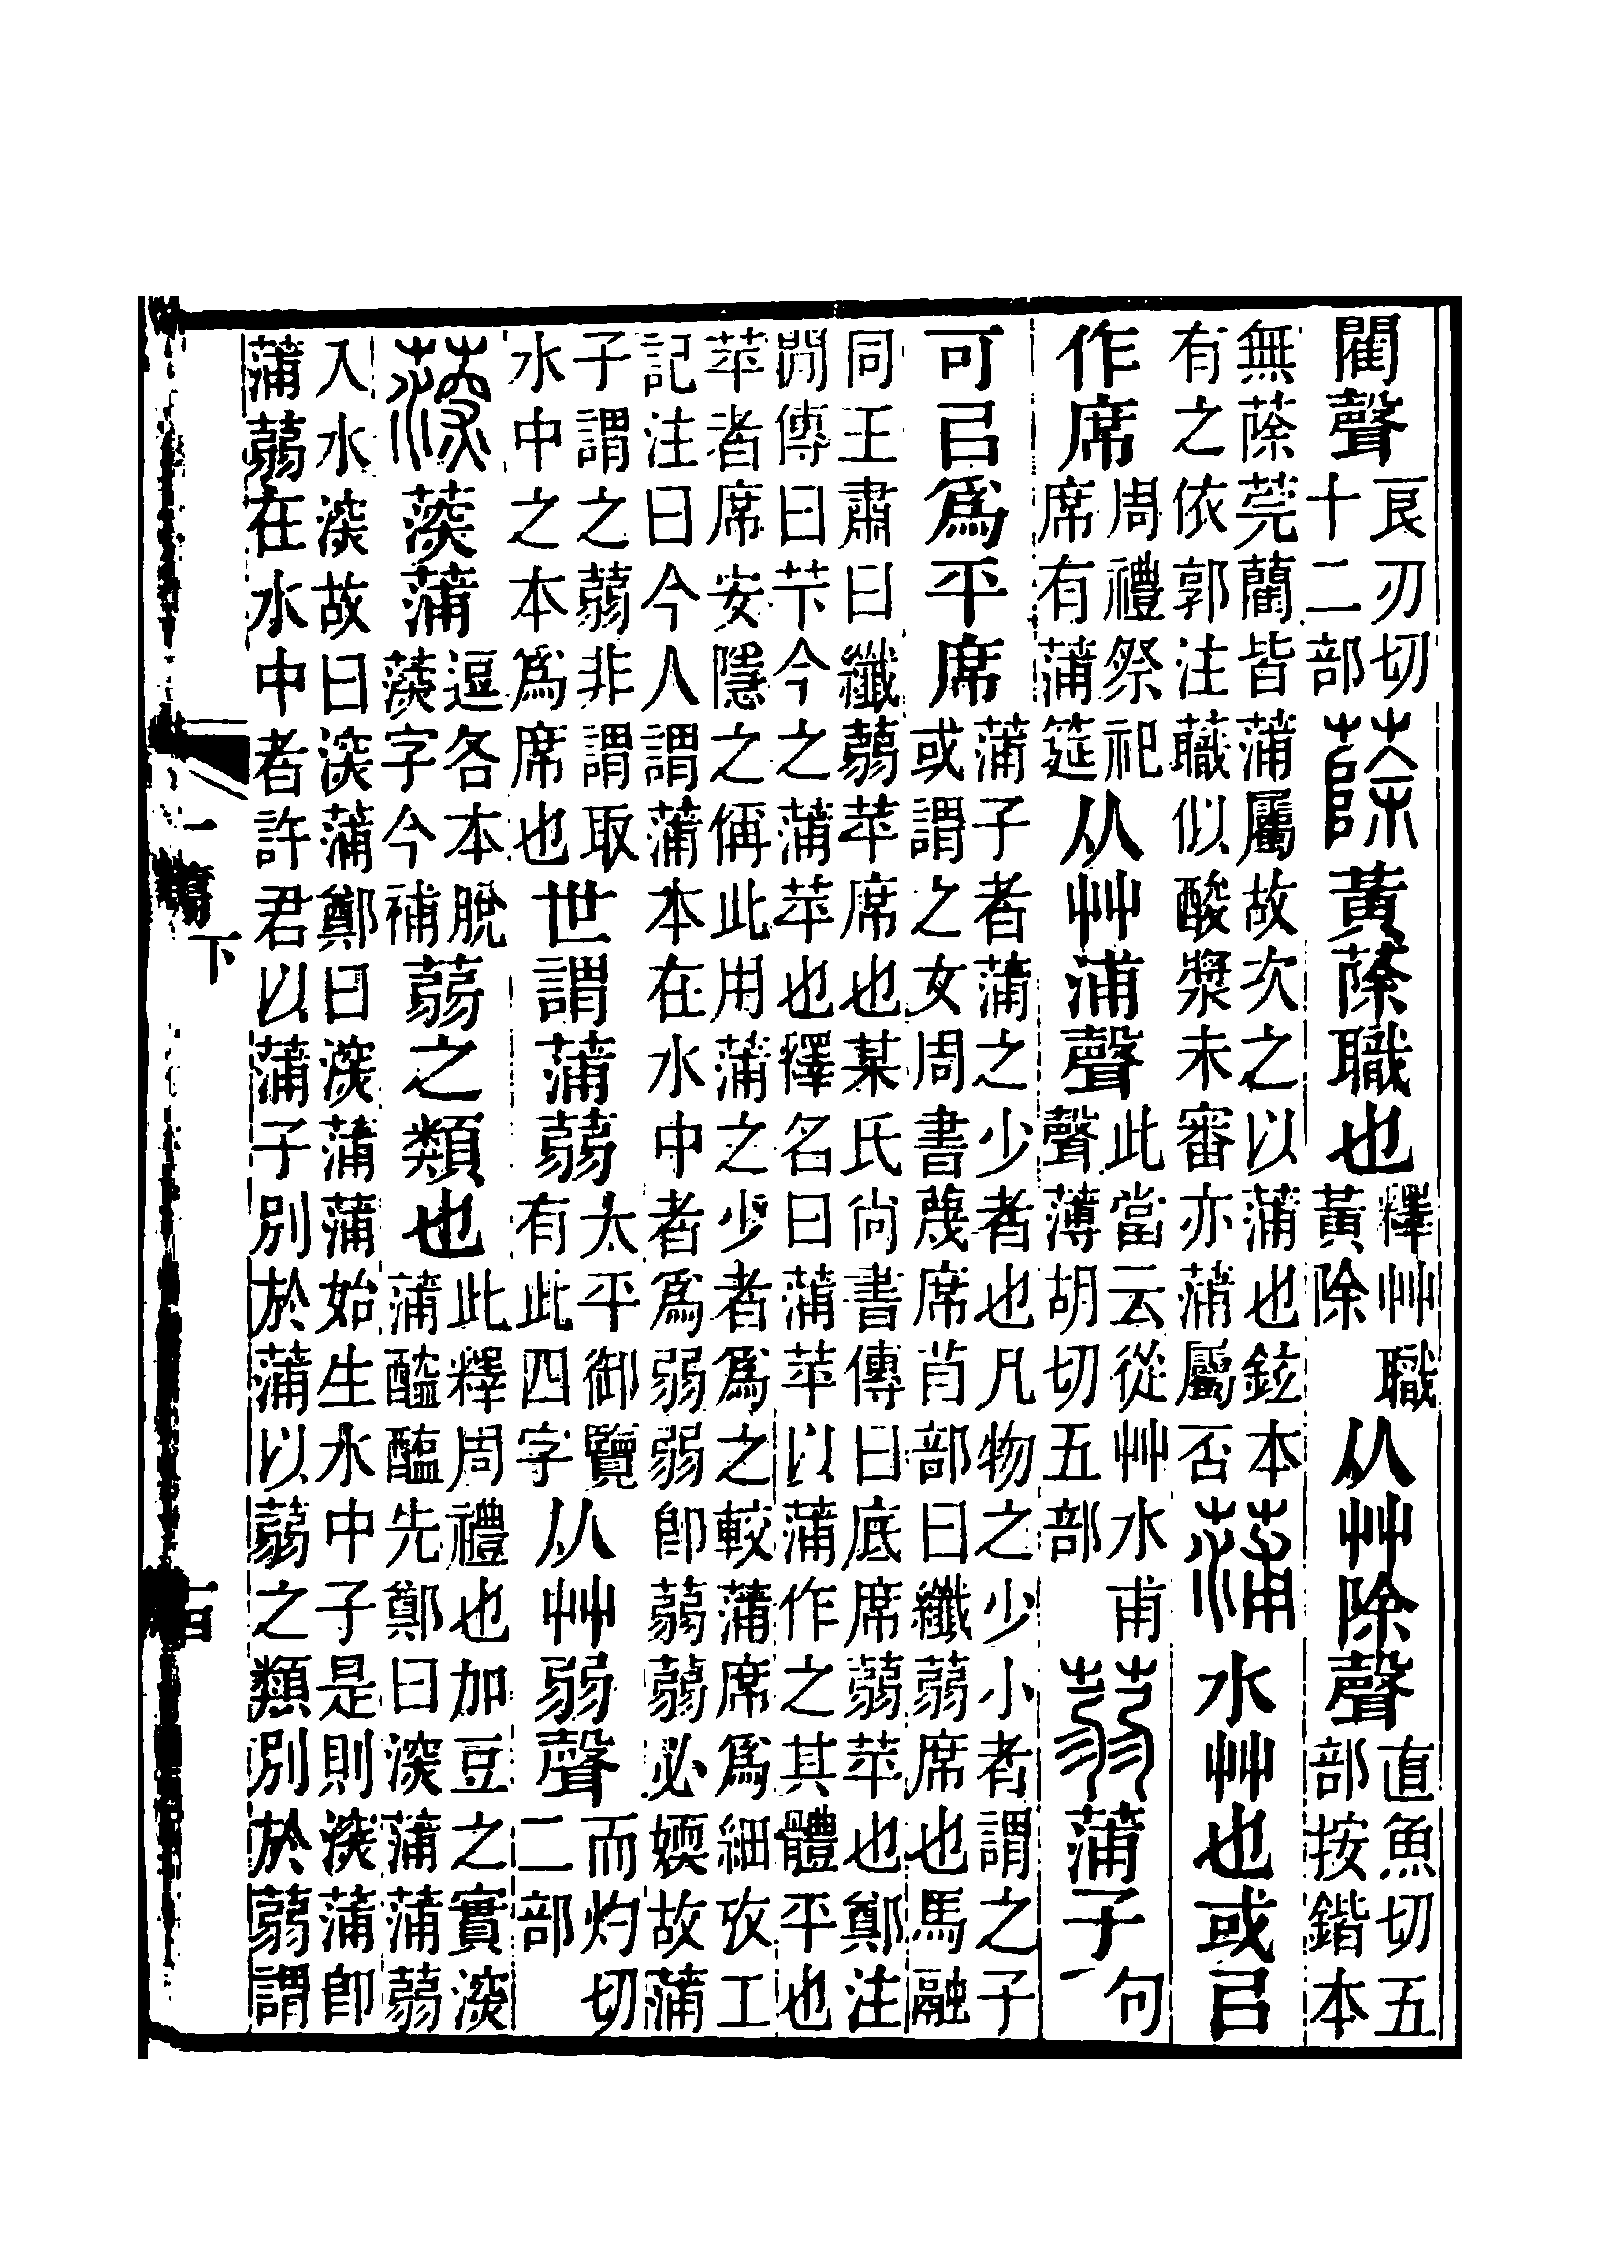 閵聲良刃切
十二部蒢黃蒢職也釋艸職
黃除从艸除聲直魚切五
部按鍇本
無蒢莞藺皆蒲屬故次之以蒲也鉉本
有之依郭注職似酸漿未審亦蒲屬否蒲水艸也或㠯
作席周禮祭祀
席有蒲筵从艸浦聲此當云從艸水甫
聲薄胡切五部蒻蒲子句
可㠯爲平席蒲子者蒲之少者也凡物之少小者謂之子
或謂之女周書蔑席䒬部曰纖蒻席也馬融
同王肅曰纖蒻苹席也某氏尙書傳曰底席蒻苹也鄭注
閒傳曰芐今之蒲苹也釋名曰蒲苹以蒲作之其體平也
苹者席安隱之偁此用蒲之少者爲之較蒲席爲細攷工
記注曰今人謂蒲本在水中者爲弱弱卽蒻蒻必媆故蒲
子謂之蒻非謂取
水中之本爲席也世謂蒲蒻太平御覽
有此四字从艸弱聲而灼切
二部
蒤蒲逗各本脫
字今補蒻之類也此釋周禮也加豆之實深
蒲醓醢先鄭曰深蒲蒲蒻
入水深故曰深蒲鄭曰深蒲蒲始生水中子是則深蒲卽
蒲蒻在水中者許君以蒲子別於蒲以蒻之類別於蒻謂
一篇下